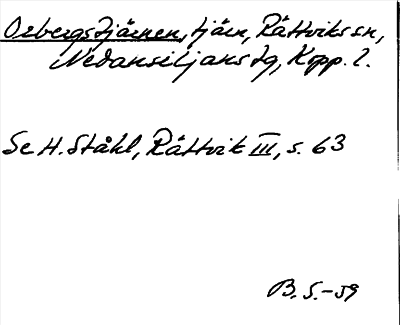 Orbergstjärnen, tjärn, Rättviks sn,
Nedansiljans tg, Kopp. l.
Se H. Ståhl, Rättvik III, s. 63
B. S. -59